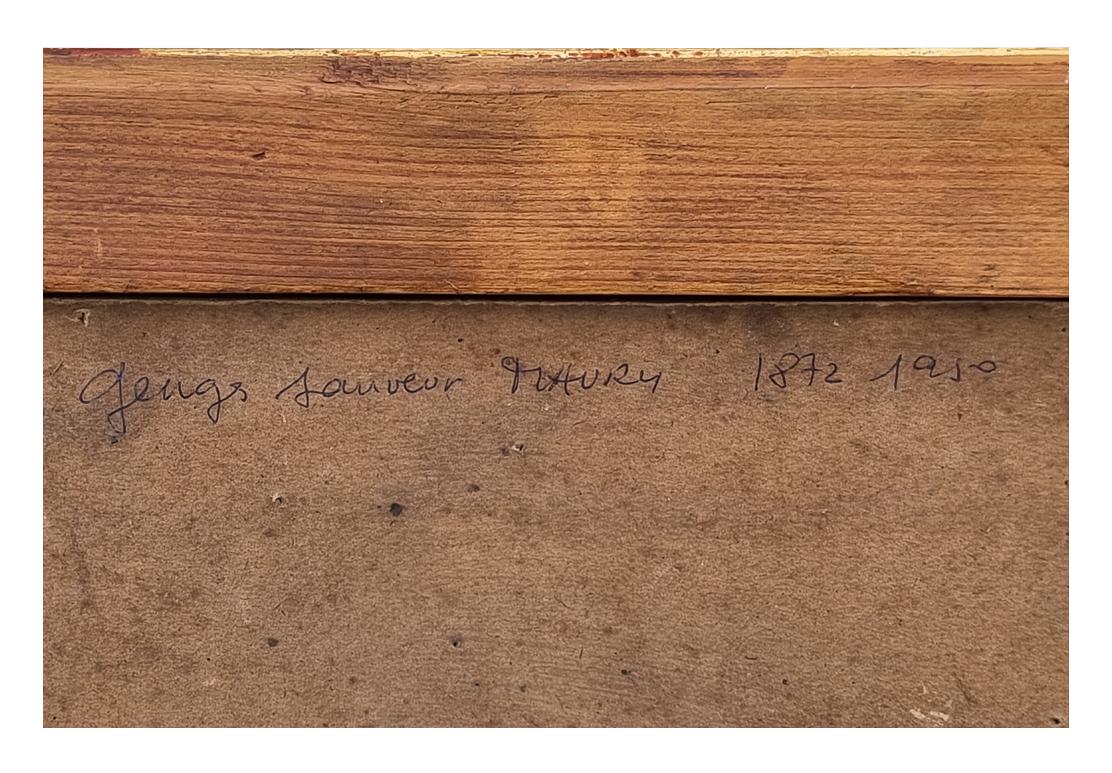 Georges Sauveur MAURY 1872 1950